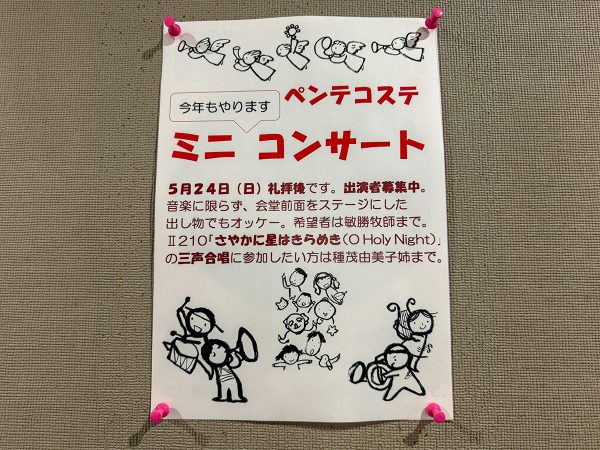 今年もやります
ペンテコステ
ミニ コンサート
5月24日(日)礼拝後です。出演者募集中。
音楽に限らず、会堂前面をステージにした
出し物でもオッケー。希望者は敏勝牧師まで。
Ⅱ210「さやかに星はきらめき(O Holy Night)」
の三声合唱に参加したい方は種茂由美子姉まで。